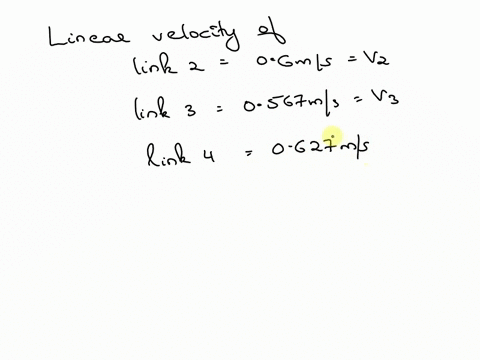 Linear velocity of
link 2 = 0.6m/s = V2
link 3 = 0.567m/s = V3
link 4 = 0.627m/s